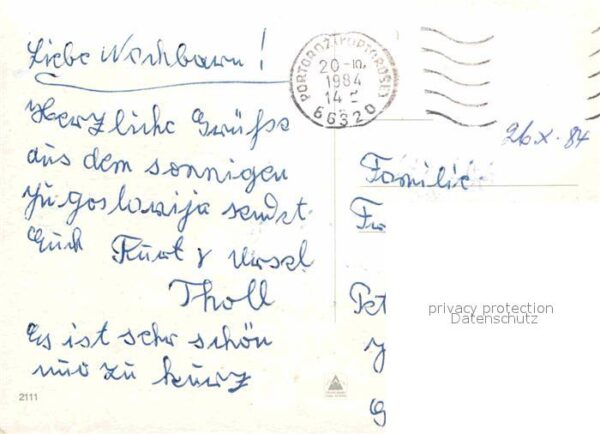 Liebe Nachbarn!
Herzliche Grüße
aus dem sonnigen
Jugoslawija sendet
Euch Kurt & Ursel
Tholl
Es ist sehr schön
nur zu kurz
2111
PORTOROŽ (PORTOROSE)
20-10.
1984
14
66320
26.X.84
Familie
privacy protection
Datenschutz